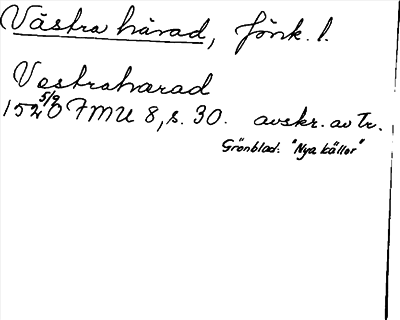 Västra härad, Jönk. l.
Vestraharad
1520 5/9 FMU 8, s. 30. avskr. av Tr.
Grönblad: "Nya källor"